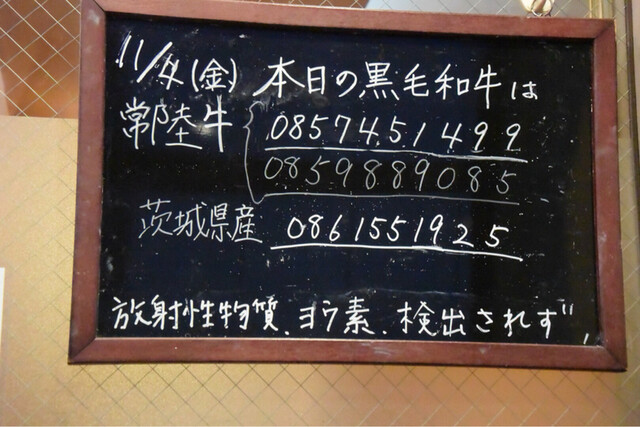 11/4(金) 本日の黒毛和牛は
常陸牛 0857451499
0859889085
茨城県産 0861551925
放射性物質、ヨウ素、検出されず、